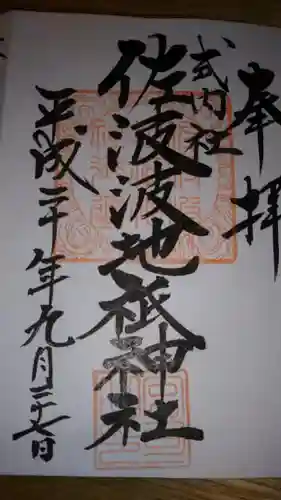 奉拝
式内社
佐波波地祇神社
平成二十年九月二十七日